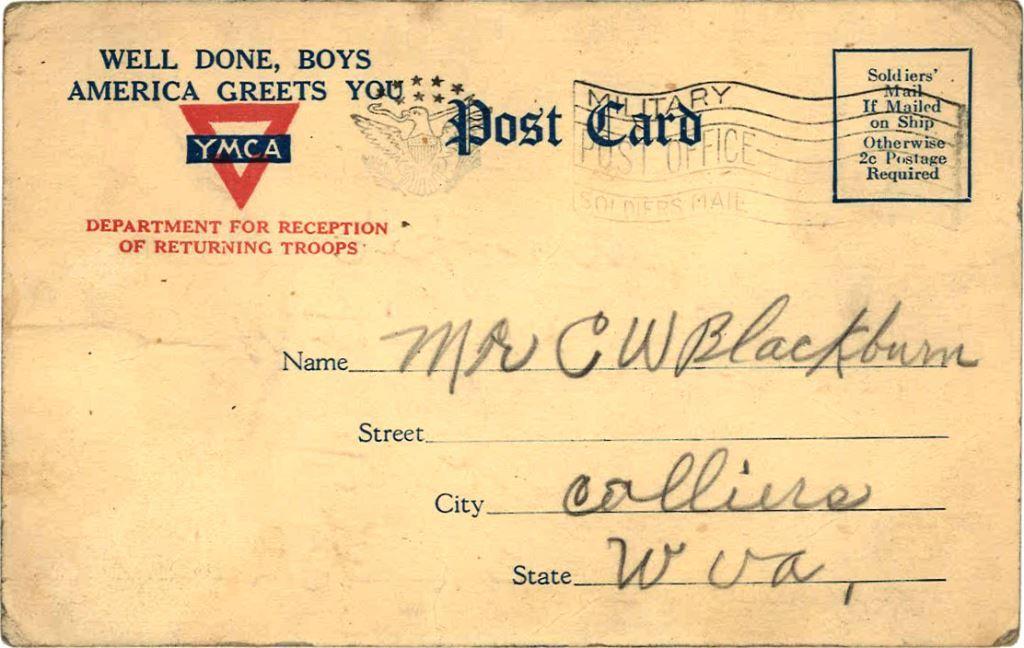 WELL DONE, BOYS
AMERICA GREETS YOU
YMCA
DEPARTMENT FOR RECEPTION
OF RETURNING TROOPS
Post Card
MILITARY
POST OFFICE
SOLDIERS MAIL
Soldiers'
Mail
If Mailed
on Ship
Otherwise
2c Postage
Required
Name Mr C W Blackburn
Street
City Colliers
State W Va,